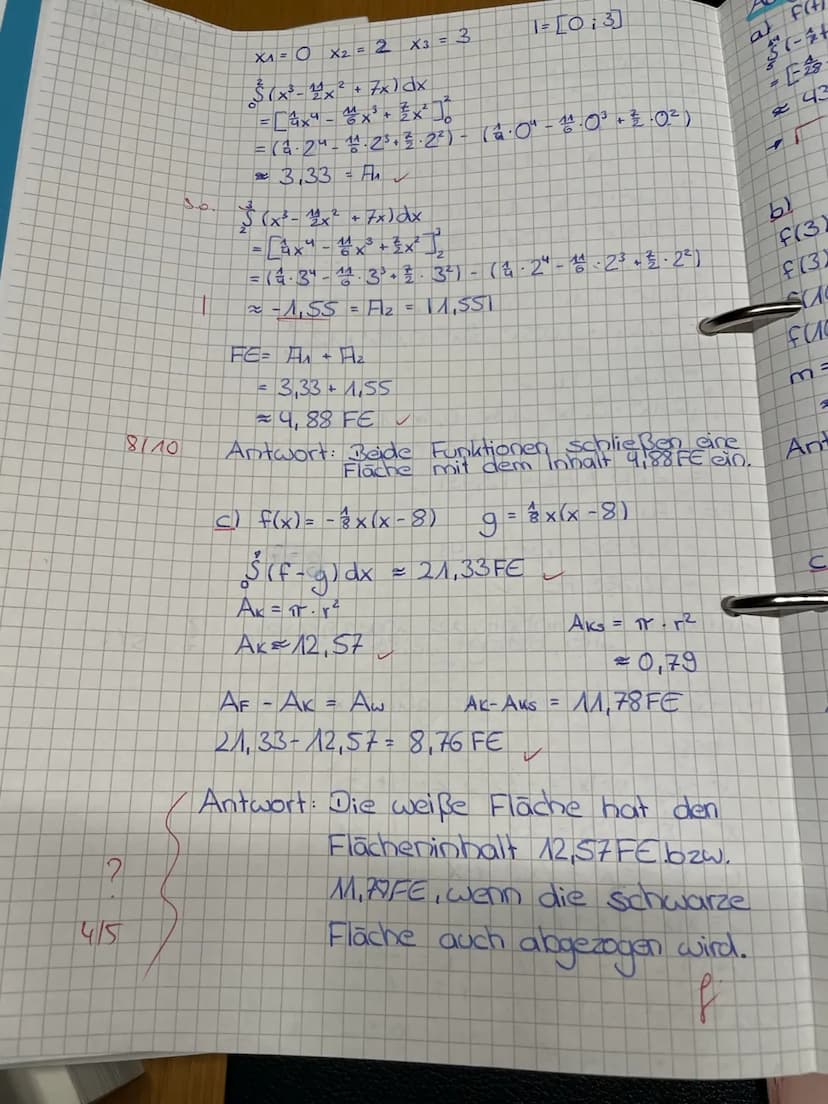 x₁ = 0 x₂ = 2 x₃ = 3 I = [0 ; 3]
²∫₀ (x³ - 11/2 x² + 7x) dx
= [1/4 x⁴ - 11/6 x³ + 7/2 x²]²₀
= (1/4 · 2⁴ - 11/6 · 2³ + 7/2 · 2²) - (1/4 · 0⁴ - 11/6 · 0³ + 7/2 · 0²)
≈ 3,33 = A₁ ✓
s.o.
³∫₂ (x³ - 11/2 x² + 7x) dx
= [1/4 x⁴ - 11/6 x³ + 7/2 x²]³₂
= (1/4 · 3⁴ - 11/6 · 3³ + 7/2 · 3²) - (1/4 · 2⁴ - 11/6 · 2³ + 7/2 · 2²)
| ≈ -1,55 = A₂ = |1,55|
FE = A₁ + A₂
= 3,33 + 1,55
≈ 4,88 FE ✓
8/10 Antwort: Beide Funktionen schließen eine
Fläche mit dem Inhalt 4,88FE ein.
c) f(x) = -1/8 x(x - 8) g = 1/8 x(x - 8)
⁸∫₀ (f - g) dx ≈ 21,33 FE ✓
AK = π · r²
AK ≈ 12,57 ✓
AKS = π · r²
≈ 0,79
AF - AK = AW AK - AKS = 11,78 FE
21,33 - 12,57 = 8,76 FE ✓
Antwort: Die weiße Fläche hat den
Flächeninhalt 12,57 FE bzw.
? 11,79 FE, wenn die schwarze
4/5 Fläche auch abgezogen wird.
f
a) f(
b)
f(3)
f(3)
m =
Ant
c